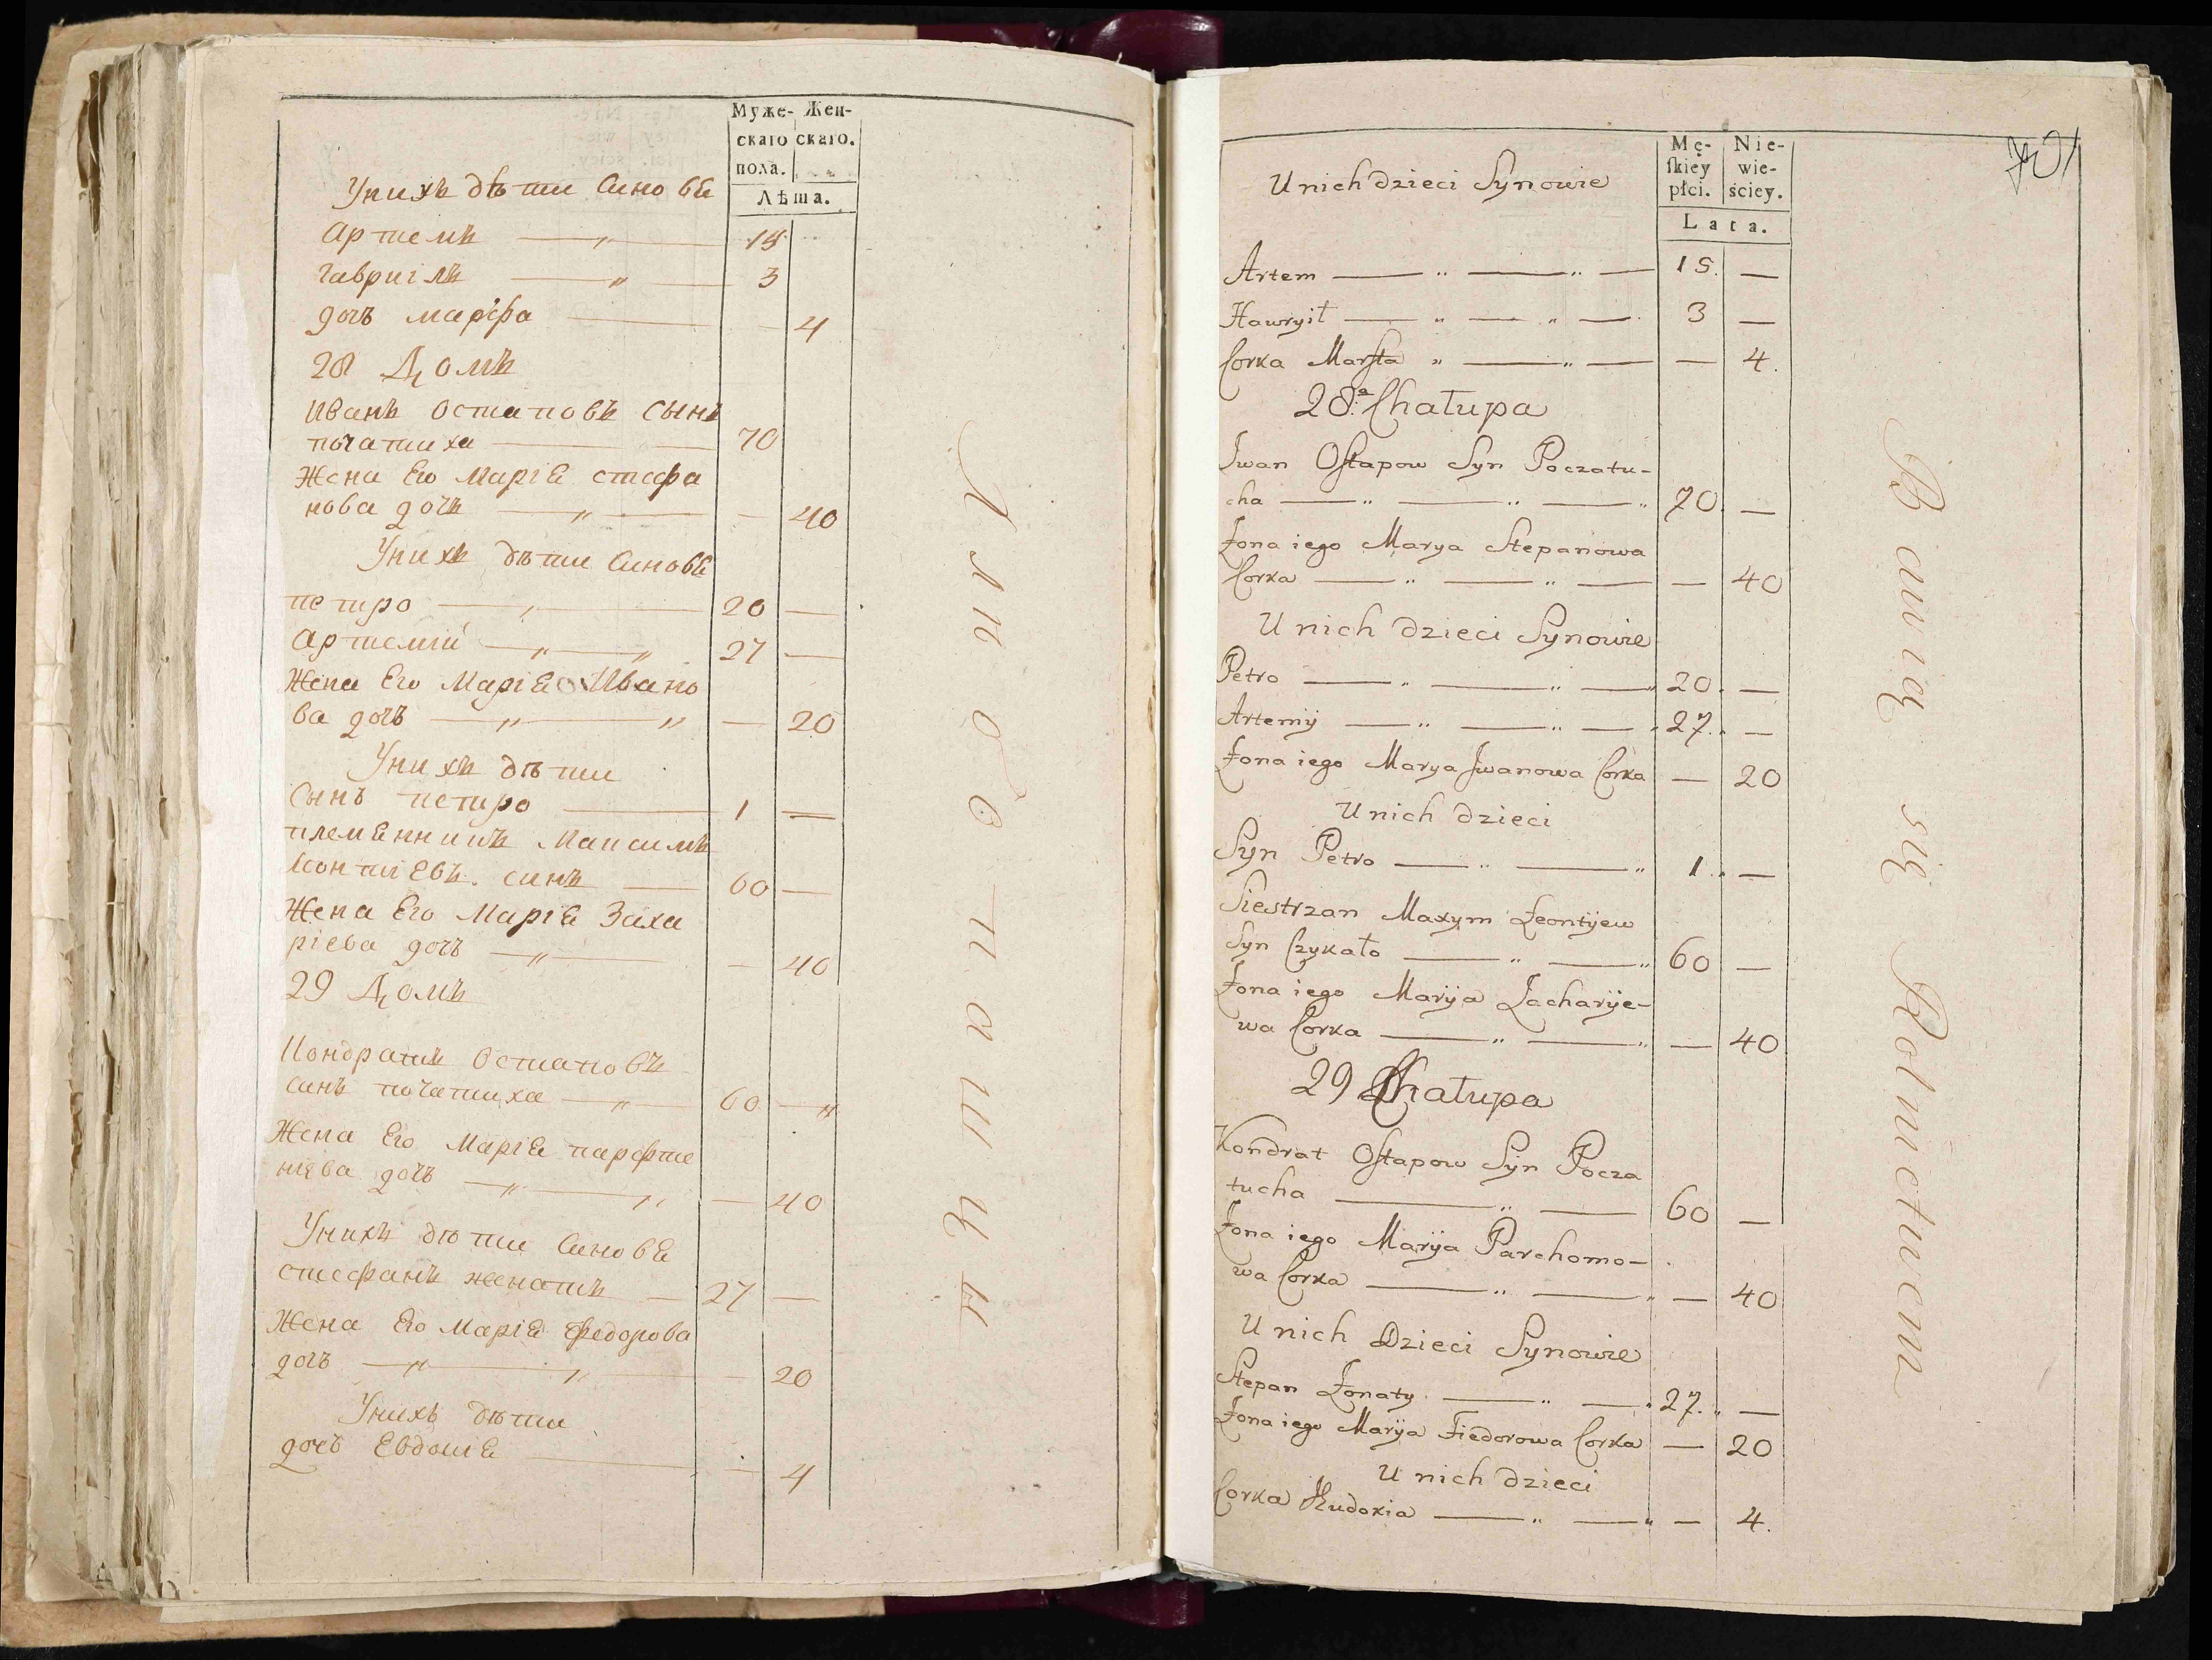 Муже- Жен-
скаго скаго.
пола.
Лѣта.
Унихъ дѣти Синовѣ
Артемъ — 15
Гавриілъ — 3
дочъ марѳа — — 4
28 Домъ
Иванъ Остаповъ Сынъ
початуха — 70
Жена Его Маріѣ стефа
нова дочъ — — 40
Унихъ дѣти Синовѣ
петро — 20 —
Артемій — 27 —
Жена Его Маріѣ Ивано
ва дочъ — — 20
Унихъ дѣти
Сынъ петро — 1 —
племѣнникъ Максимъ
леонтіевъ. синъ — 60 —
Жена Его Маріѣ Заха
ріева дочъ — — 40
29 Домъ
Кондратъ Остаповъ
синъ початуха — 60 —
Жена Его Маріѣ парфте
ніева дочъ — — 40
Унихъ дѣти Синовѣ
стефанъ женатъ — 27 —
Жена Его Маріѣ Федорова
дочъ — — 20
Унихъ дѣти
дочъ Евдокіѣ — — 4
Хлѣбопашцы
701
Mę- Nie-
skiey wie-
płci. ściey.
Lata.
U nich dzieci Synowie
Artem — 15. —
Hawryił — 3 —
Corka Marfta — — 4.
28.a Chałupa
Iwan Ostapow Syn Poczatu-
cha — 70. —
Żona iego Marya Stepanowa
Corka — — 40
U nich dzieci Synowie
Petro — 20. —
Artemij — 27. —
Żona iego Marya Iwanowa Corka — 20
U nich dzieci
Syn Petro — 1. —
Siestrzan Maxym Leontijew
Syn Czykało — 60 —
Żona iego Maryja Zacharije-
wa Corka — — 40
29 Chałupa
Kondrat Ostapow Syn Pocza
tucha — 60 —
Żona iego Maryja Parchomo-
wa Corka — — 40
U nich Dzieci Synowie
Stepan Żonaty — 27. —
Żona iego Maryja Fiedorowa Corka — 20
U nich dzieci
Corka Eudoxia — — 4.
Bawią się Rolnictwem